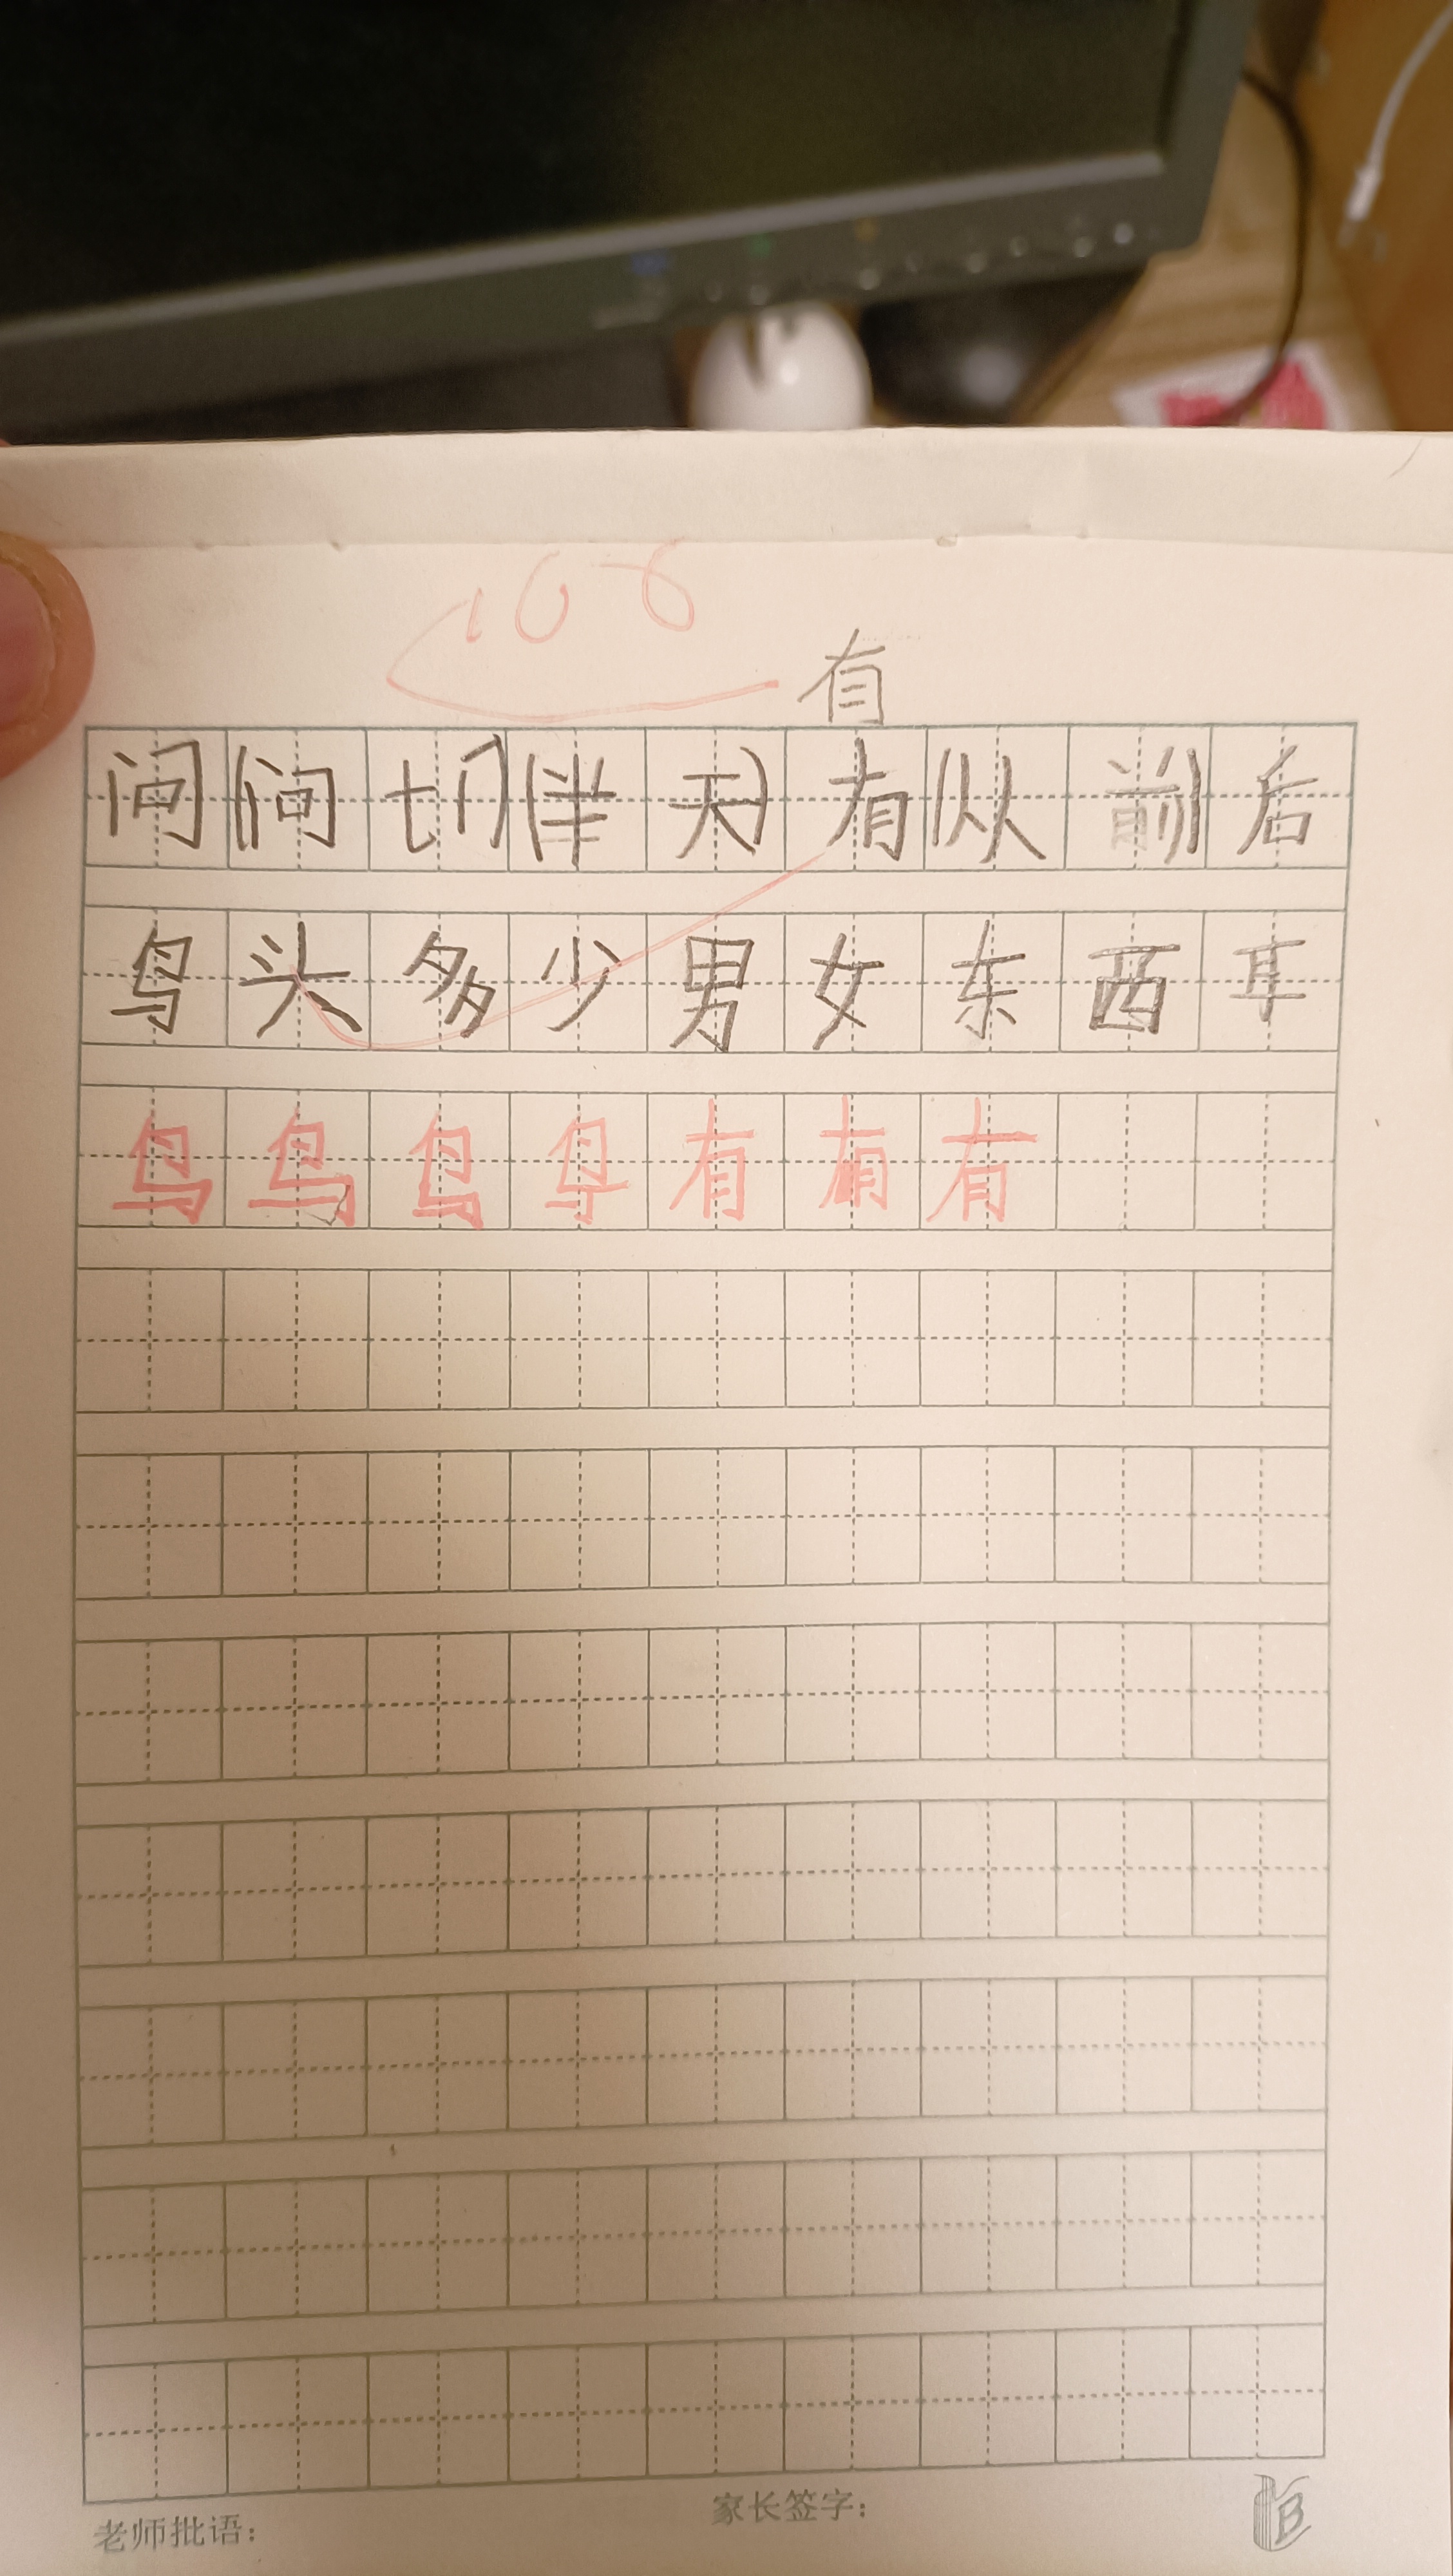 100
有
问问切半天有从前后
鸟头多少男女东西耳
鸟鸟鸟鸟有有有
老师批语： 家长签字：
B